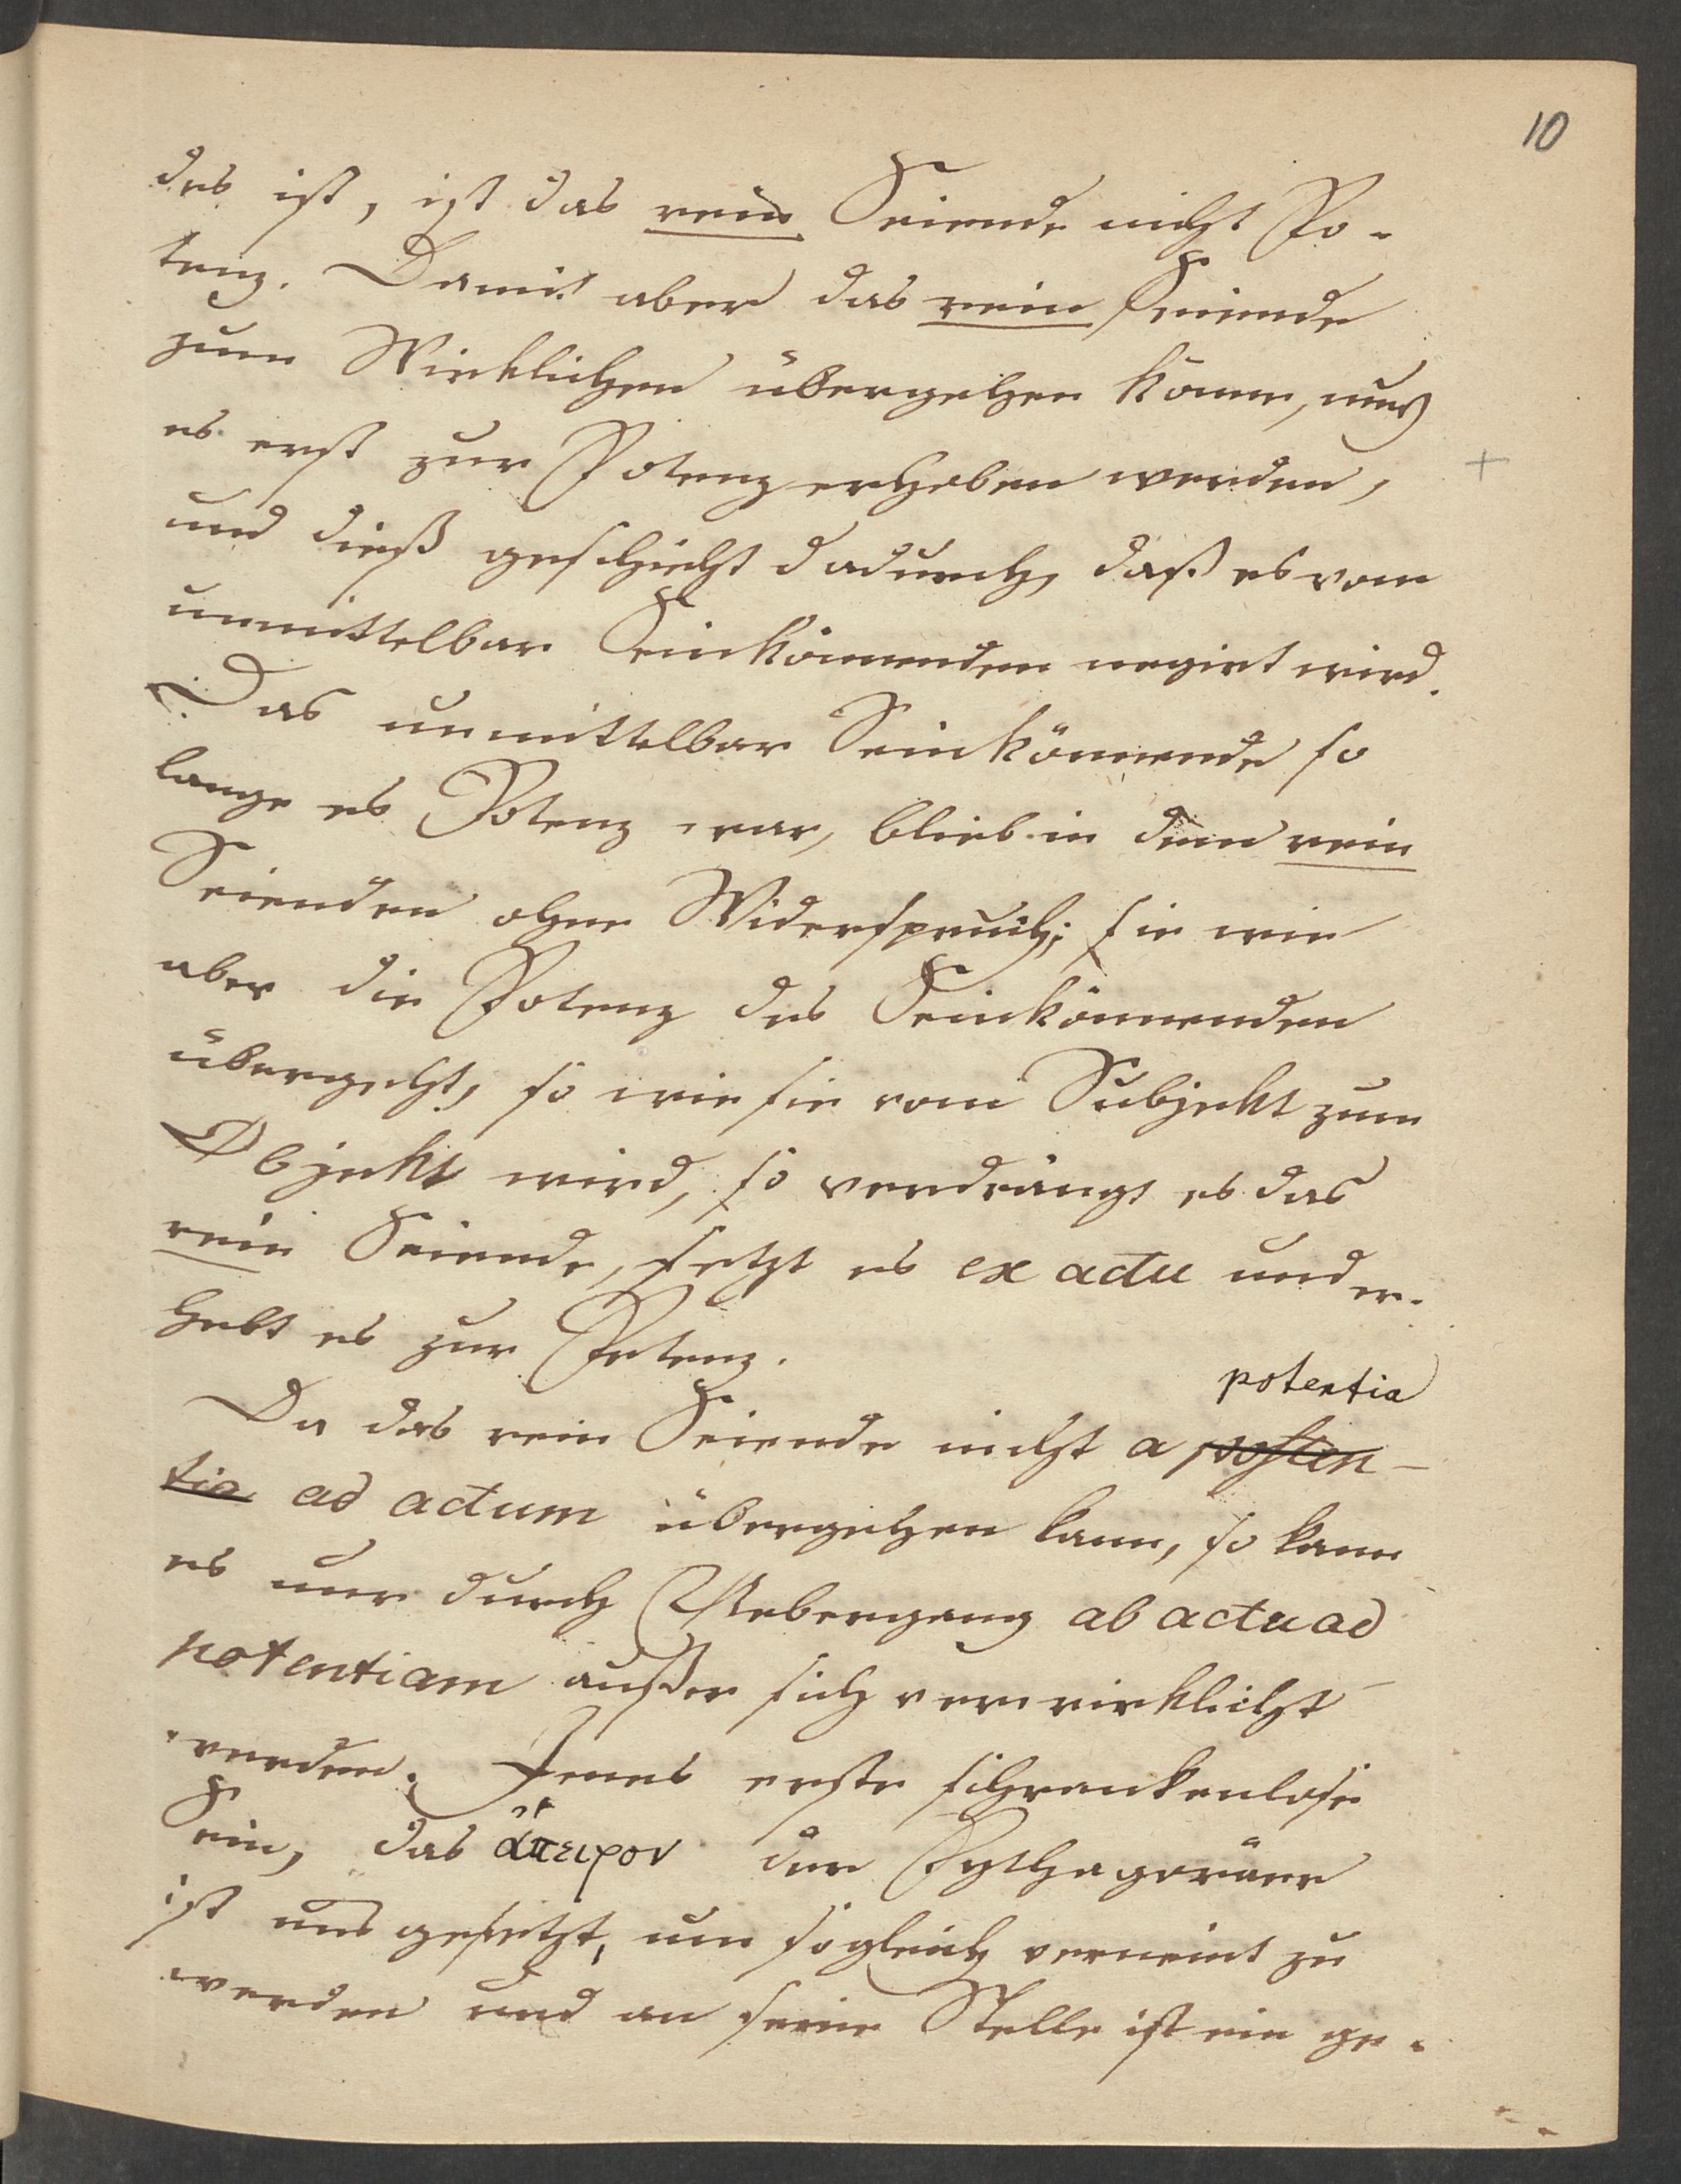 10
des ist, ist das rein Seiende nicht Po-
tenz. Damit aber das rein Seiende
zum Wirklichen übergehen kann, muß
es erst zur Potenz erhoben werden,
und dieß geschieht dadurch, daß es vom
unmittelbar Seinkönnenden negirt wird.
Das unmittelbar Seinkönnende so
lange es Potenz war, blieb in dem rein
Seienden ohne Widerspruch; sie wie
aber die Potenz des Seinkönnenden
übergeht, so wie sie vom Subjekt zum
Objekt wird, so verdrängt es das
rein Seiende, setzt es ex actu und er-
hebt es zur Potenz.
potentia
Da das rein Seiende nicht a posten-
tia ad actum übergehen kann, so kann
es nur durch Uebergang ab actu ad
potentiam außer sich verwirklicht
werden. Jenes erste schrankenlose
Sein, das ἄπειρον der Pythagoräer
ist uns gesetzt, um sogleich verneint zu
werden und an seine Stelle ist ein ge-